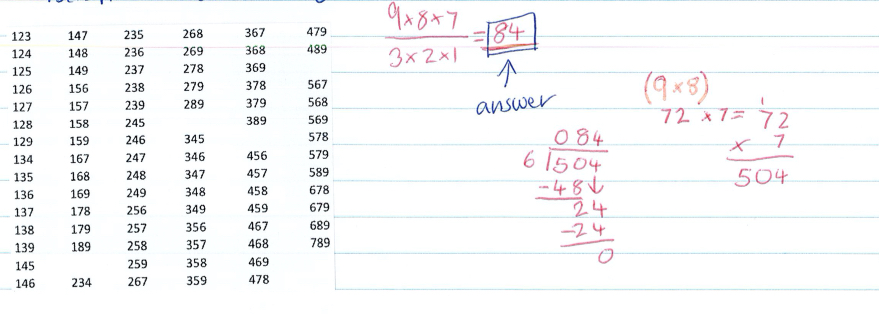 123 147 235 268 367 479
124 148 236 269 368 489
125 149 237 278 369
126 156 238 279 378 567
127 157 239 289 379 568
128 158 245 389 569
129 159 246 345 578
134 167 247 346 456 579
135 168 248 347 457 589
136 169 249 348 458 678
137 178 256 349 459 679
138 179 257 356 467 689
139 189 258 357 468 789
145 259 358 469
146 234 267 359 478
9×8×7
3×2×1
=84
answer
(9×8)
72 ×7= 1
72
× 7
504
084
6 504
-48↓
24
-24
0